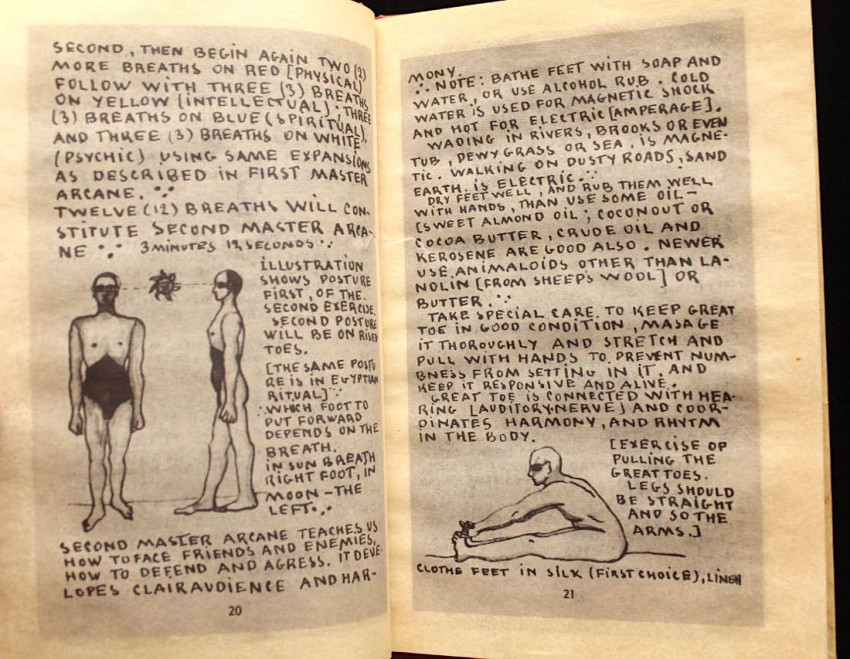 SECOND, THEN BEGIN AGAIN TWO (2)
MORE BREATHS ON RED [PHYSICAL)
FOLLOW WITH THREE (3) BREATHS
ON YELLOW [INTELLECTUAL); THREE
(3) BREATHS ON BLUE (SPIRITUAL),
AND THREE (3) BREATHS ON WHITE
(PSYCHIC) USING SAME EXPANSIONS
AS DESCRIBED IN FIRST MASTER
ARCANE.
TWELVE (12) BREATHS WILL CON-
STITUTE SECOND MASTER ARCA-
NE 3 MINUTES 12 SECONDS
ILLUSTRATION
SHOWS POSTURE
FIRST, OF THE
SECOND EXERCISE.
SECOND POSTURE
WILL BE ON RISEN
TOES.
[THE SAME POSTU
RE IS IN EGYPTIAN
RITUAL]
WHICH FOOT TO
PUT FORWARD
DEPENDS ON THE
BREATH.
IN SUN BREATH
RIGHT FOOT, IN
MOON - THE
LEFT.
SECOND MASTER ARCANE TEACHES US
HOW TO FACE FRIENDS AND ENEMIES,
HOW TO DEFEND AND AGRESS. IT DEVE-
LOPES CLAIRAUDIENCE AND HAR-
20
MONY.
NOTE: BATHE FEET WITH SOAP AND
WATER, OR USE ALCOHOL RUB. COLD
WATER IS USED FOR MAGNETIC SHOCK
AND HOT FOR ELECTRIC [AMPERAGE].
WADING IN RIVERS, BROOKS OR EVEN
TUB, DEWY GRASS OR SEA, IS MAGNE-
TIC. WALKING ON DUSTY ROADS, SAND
EARTH, IS ELECTRIC.
DRY FEET WELL, AND RUB THEM WELL
WITH HANDS, THAN USE SOME OIL -
[SWEET ALMOND OIL; COCONOUT OR
COCOA BUTTER, CRUDE OIL AND
KEROSENE ARE GOOD ALSO. NEWER
USE ANIMALOIDS OTHER THAN LA-
NOLIN [FROM SHEEP'S WOOL] OR
BUTTER.
TAKE SPECIAL CARE TO KEEP GREAT
TOE IN GOOD CONDITION, MASAGE
IT THOROUGHLY AND STRETCH AND
PULL WITH HANDS TO PREVENT NUM-
BNESS FROM SETTING IN IT, AND
KEEP IT RESPONSIVE AND ALIVE.
GREAT TOE IS CONNECTED WITH HEA-
RING [AUDITORY-NERVE] AND COOR-
DINATES HARMONY, AND RHYTM
IN THE BODY.
[EXERCISE OF
PULLING THE
GREAT TOES.
LEGS SHOULD
BE STRAIGHT
AND SO THE
ARMS.]
CLOTHE FEET IN SILK (FIRST CHOICE), LINEN
21